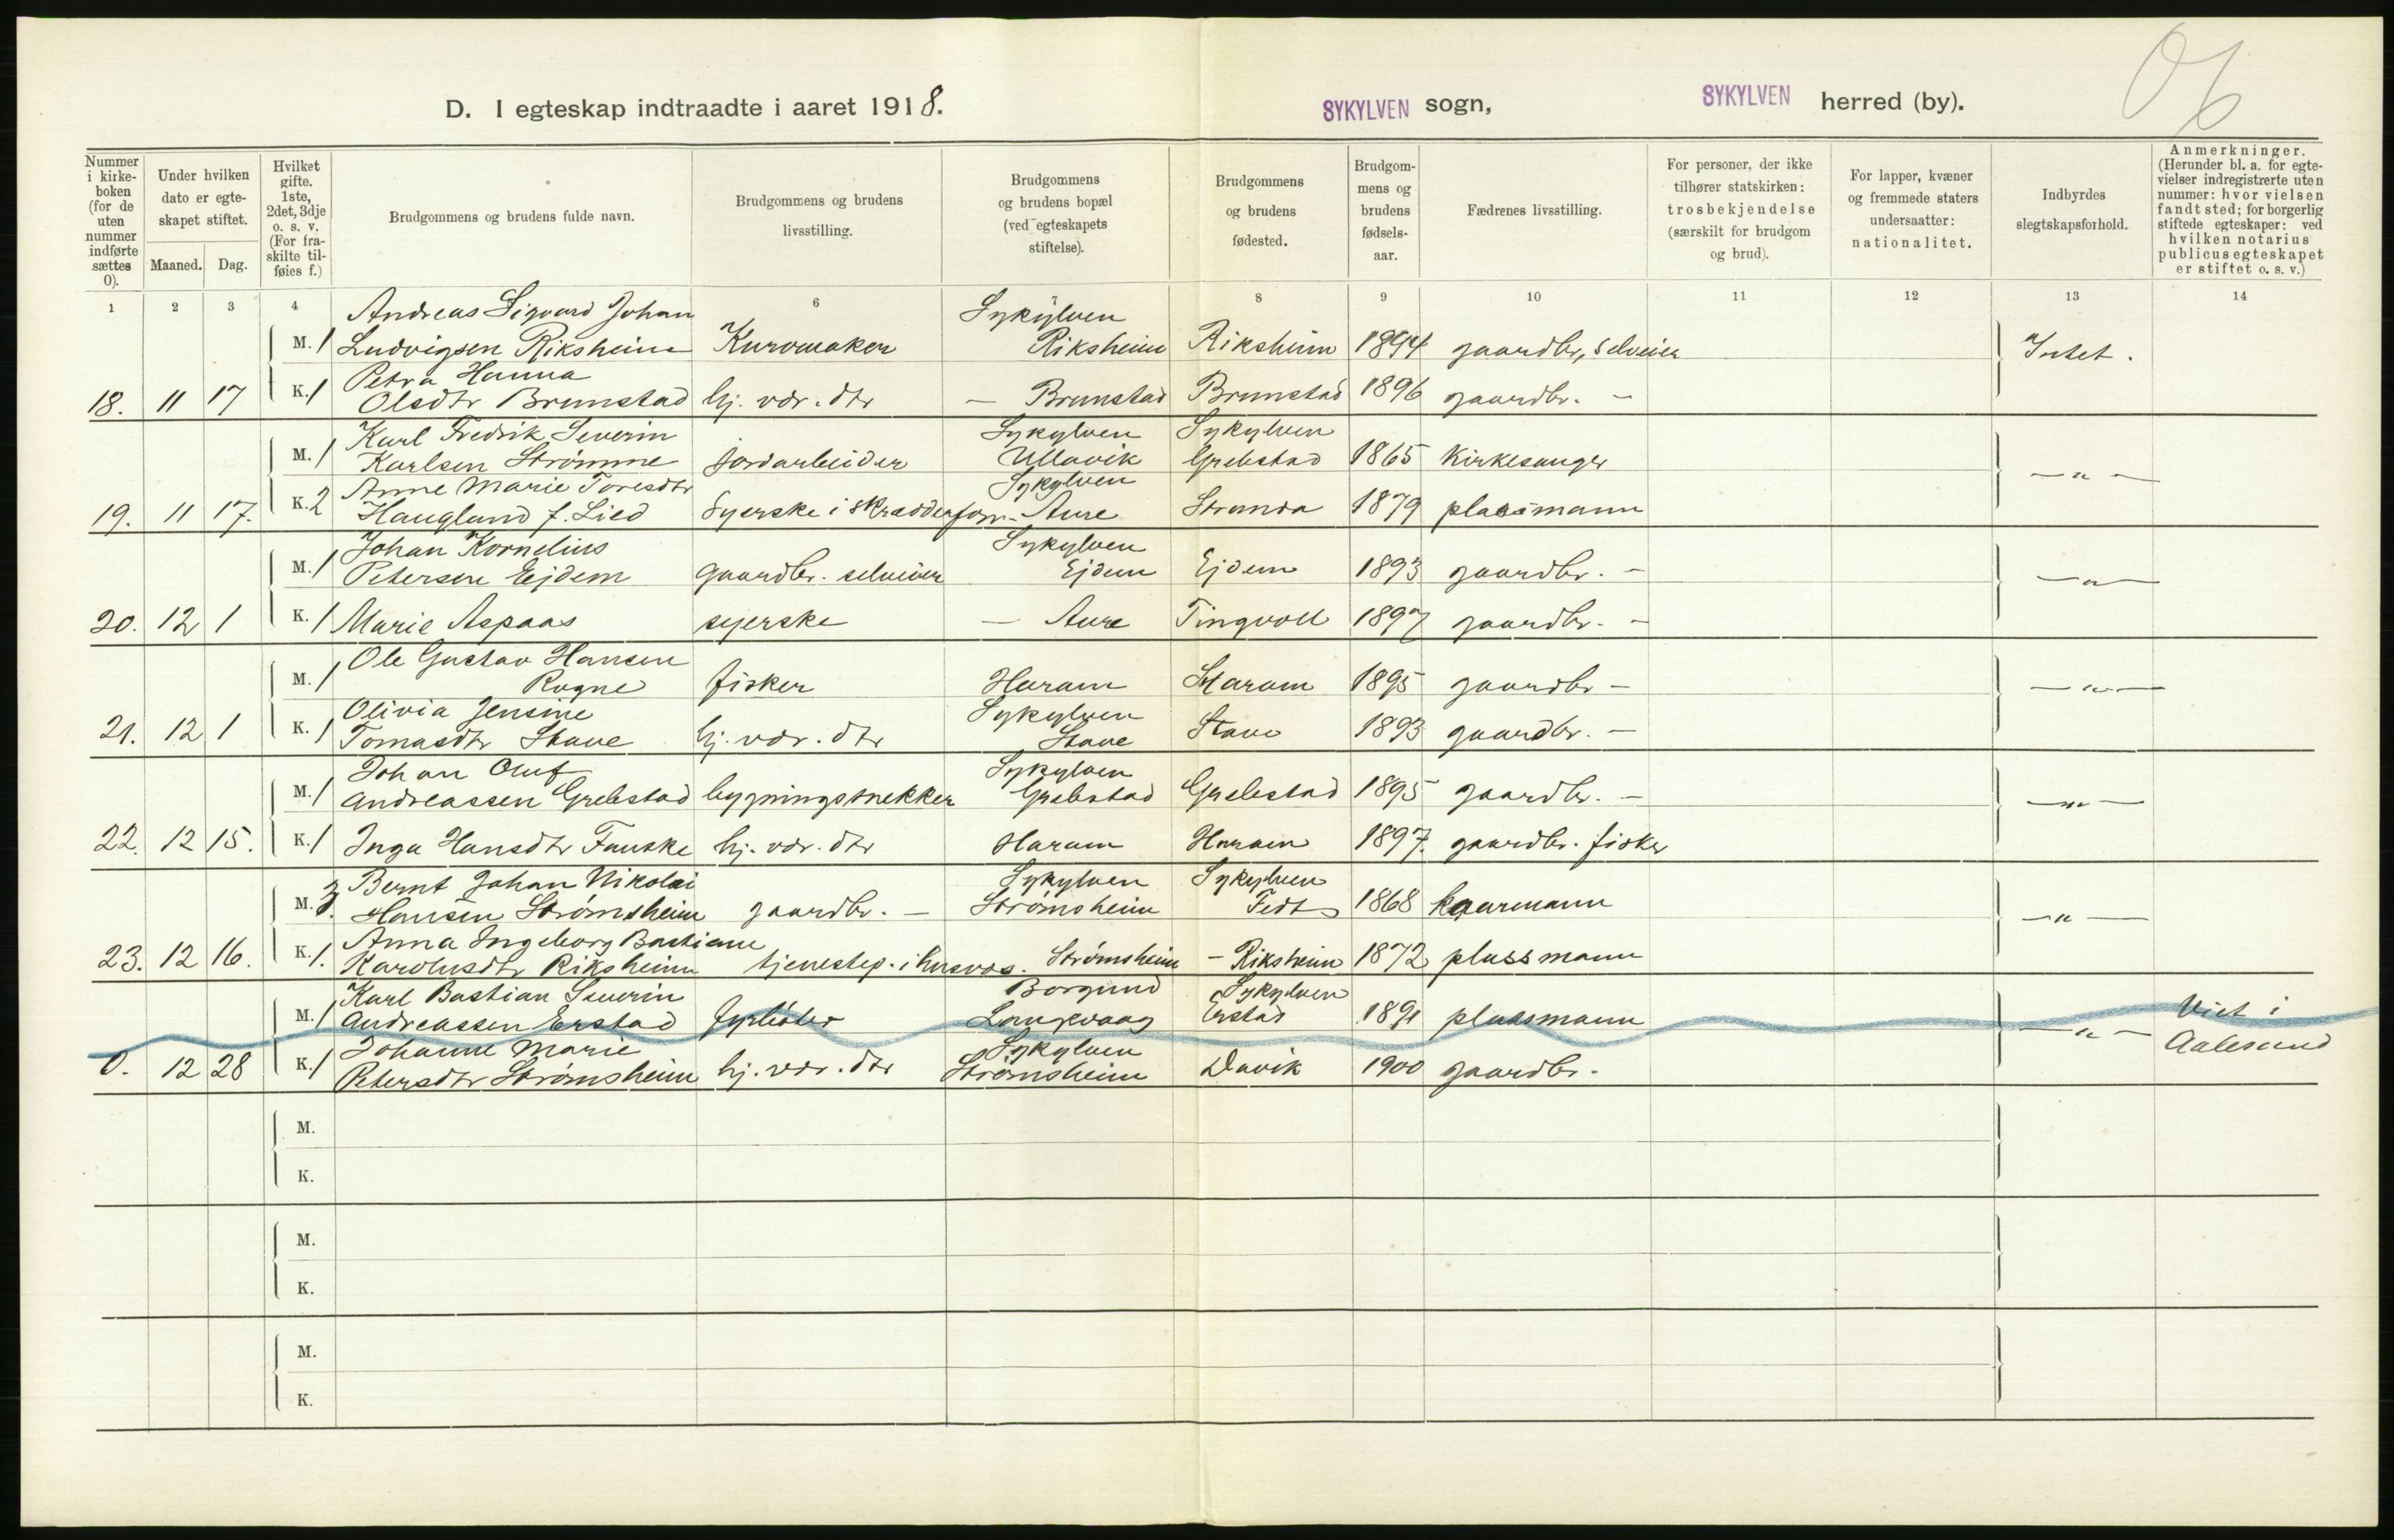 D. I egteskap indtraadte i aaret 1918.
SYKYLVEN sogn, SYKYLVEN herred (by).
Nummer i kirkeboken (for de uten nummer indførte sættes 0).
Under hvilken dato er egteskapet stiftet.
Maaned. Dag.
Hvilket gifte. 1ste, 2det, 3dje o. s. v. (For fraskilte tilføies f.)
Brudgommens og brudens fulde navn.
Brudgommens og brudens livsstilling.
Brudgommens og brudens bopæl (ved egteskapets stiftelse).
Brudgommens og brudens fødested.
Brudgommens og brudens fødselsaar.
Fædrenes livsstilling.
For personer, der ikke tilhører statskirken: trosbekjendelse (særskilt for brudgom og brud).
For lapper, kvæner og fremmede staters undersaatter: nationalitet.
Indbyrdes slegtskapsforhold.
Anmerkninger. (Herunder bl. a. for egtevielser indregistrerte uten nummer: hvor vielsen fandt sted; for borgerlig stiftede egteskaper: ved hvilken notarius publicus egteskapet er stiftet o. s. v.)
1 2 3 4 6 8 9 10 11 12 13 14
Andreas Sigvard Johan Sykylven
M. 1 Ludvigsen Riksheim Kurvmaker Riksheim Riksheim 1894 gaardbr, selveier Intet.
Petra Hanna
18. 11 17 K. 1 Olsdtr Brunstad hj. vær. dtr — Brunstad Brunstad 1896 gaardbr. —
Karl Fredrik Severin Sykylven Sykylven
M. 1 Karlsen Strømme jordarbeider Ullavik Grebstad 1865 Kirkesanger — " —
Anne Marie Toresdtr Sykylven
19. 11 17. K. 2 Haugland f. Lied Syerske i skrædderforr. Aure Stranda 1879 plassmann
Johan Kornelius Sykylven
M. 1 Petersen Ejdem gaardbr. selveier Ejdem Ejdem 1893 gaardbr. — — " —
20. 12 1 K. 1 Marie Aspaas syerske — Aure Tingvoll 1897 gaardbr. —
Ole Gustav Hansen
M. 1 Rogne fisker Haram Haram 1895 gaardbr — — " —
Olivia Jensine Sykylven
21. 12 1 K. 1 Tomasdtr Stave hj. vær. dtr Stave Stave 1893 gaardbr. —
Johan Oluf Sykylven
M. 1 Andreassen Grebstad bygningssnekker Grebstad Grebstad 1895 gaardbr. — — " —
22. 12 15. K. 1 Inga Hansdtr Fauske hj. vær. dtr Haram Haram 1897. gaardbr. fisker
Bernt Johan Nikolai Sykylven Sykylven
M. Hansen Strømsheim gaardbr. — Strømsheim Fedt 1868 kaarmann — " —
Anna Ingeborg Bastiane
23. 12 16. K. 1. Karolusdtr Riksheim tjenestep. i husvæs. Strømsheim — Riksheim 1872 plassmann
Karl Bastian Severin Borgund Sykylven
M. 1 Andreassen Erstad fyrbøter Langevaag Erstad 1891 plassmann — " — Viet i
Johanne Marie Sykylven Aalesund
0. 12 28 K. 1 Petersdtr Strømsheim hj. vær. dtr Strømsheim Davik 1900 gaardbr.
M.
K.
M.
K.
M.
K.